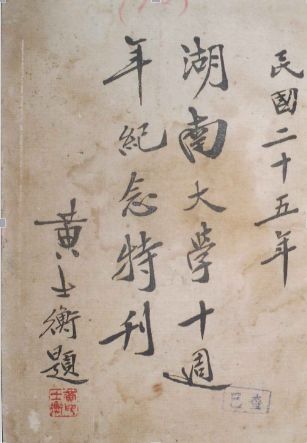 民國二十五年
湖南大学十週
年紀念特刊
黃士衡題